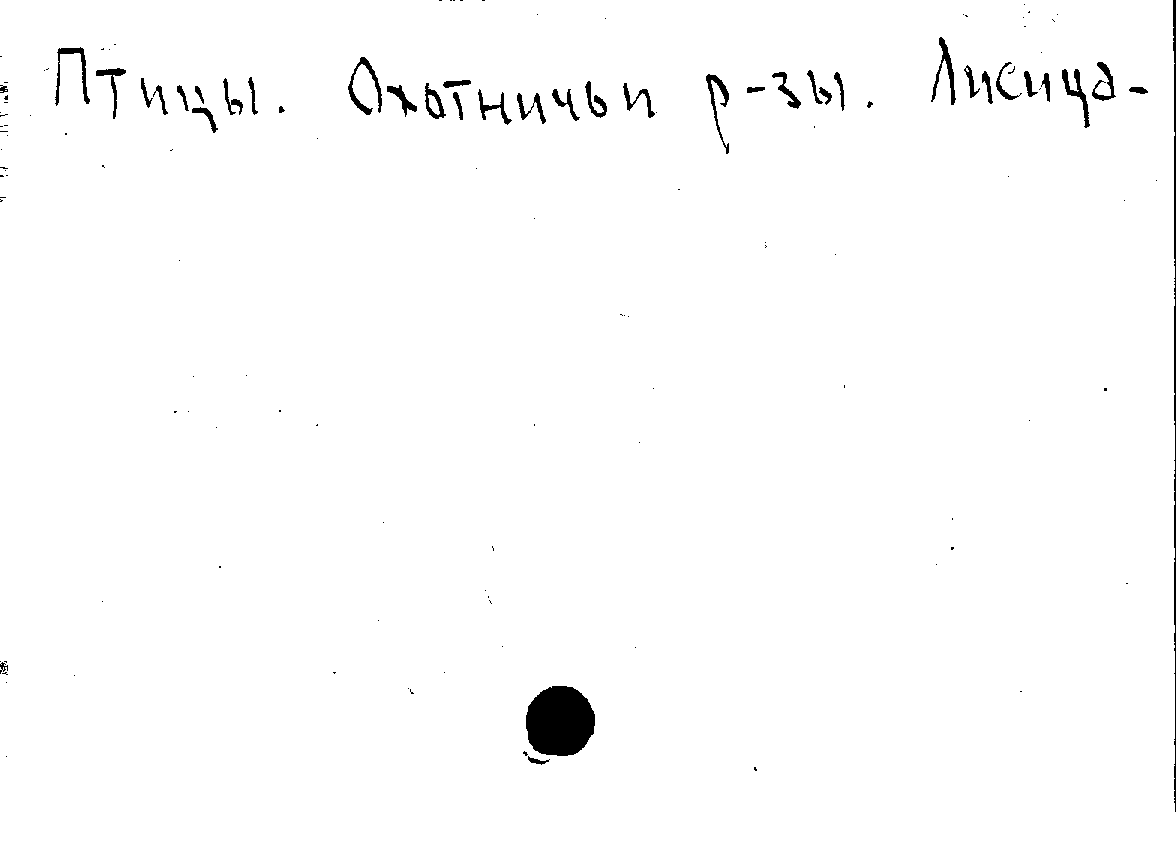 Птицы. Охотничьи р-зы. Лисица-